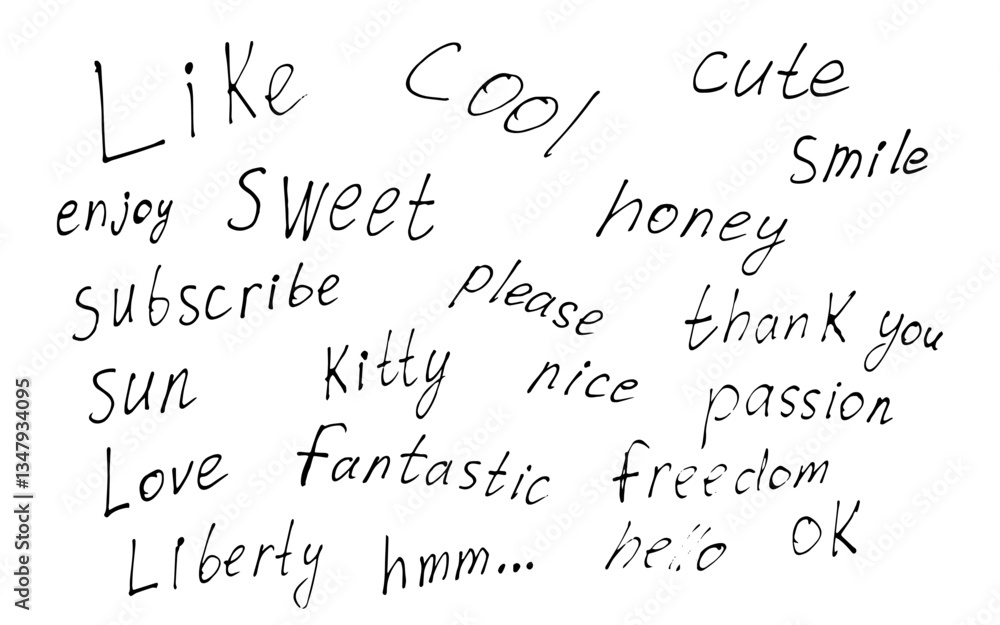 Like Cool cute
smile
enjoy sweet honey
subscribe please thank you
sun Kitty nice passion
Love fantastic freedom
Liberty hmm... hello OK
Adobe Stock | #1347934095